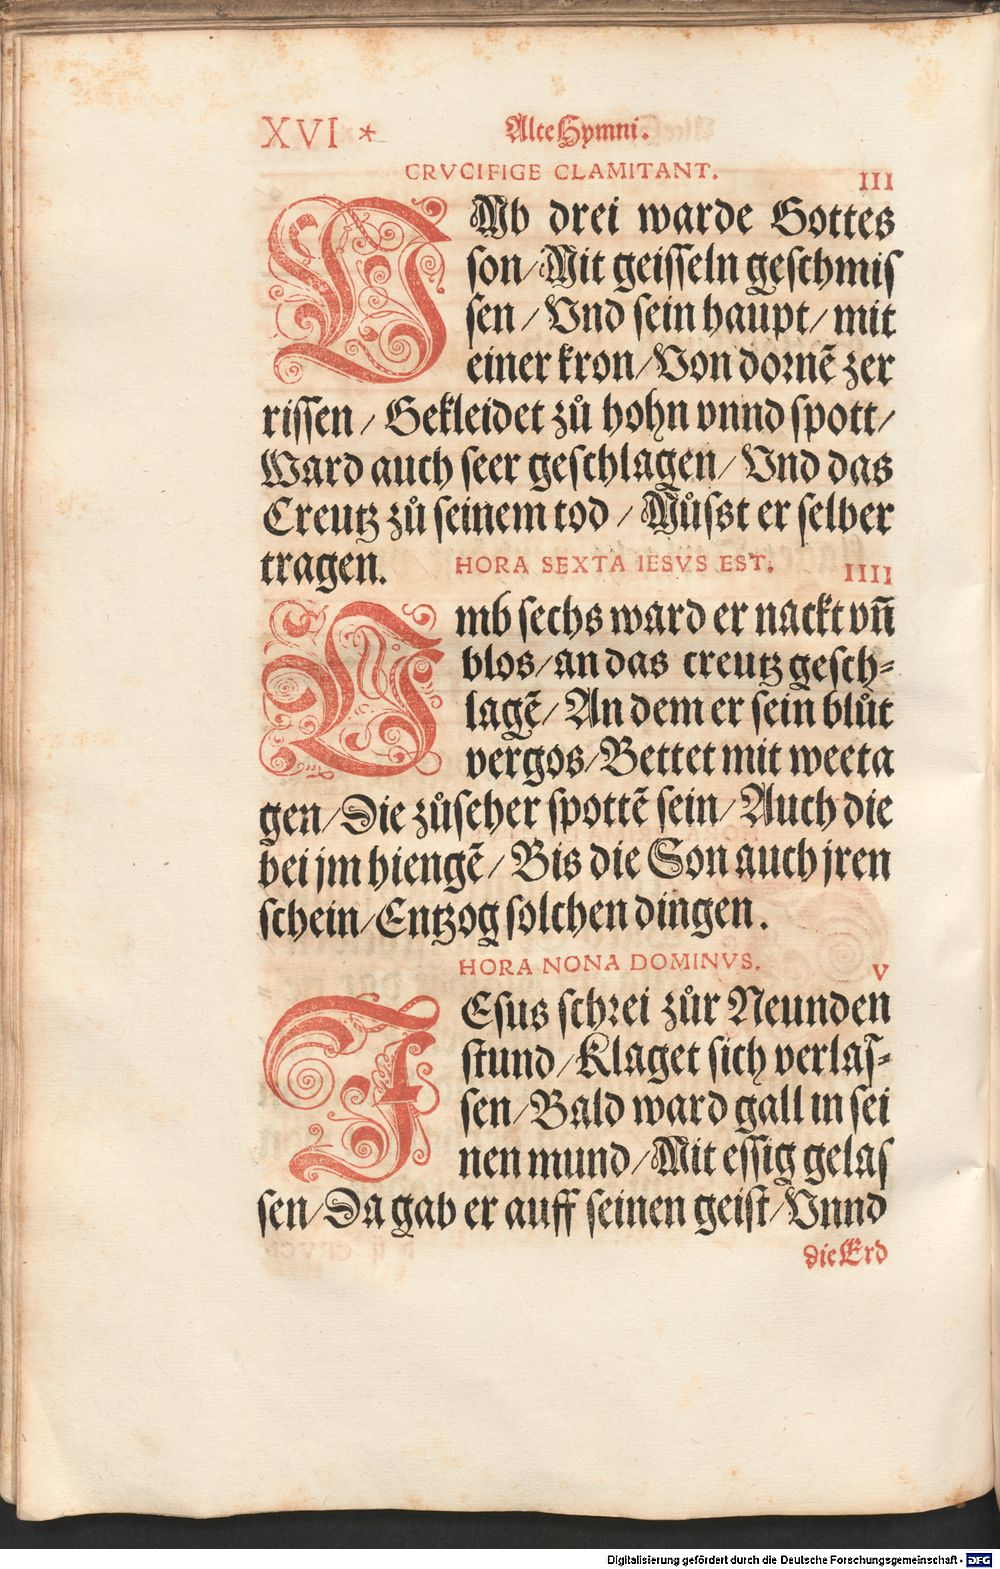 XVI *
Alte Hymni.
CRVCIFIGE CLAMITANT.
III
VMb drei warde Gottes
son/Mit geisseln geschmis
sen/Vnd sein haupt/mit
einer kron/Von dornẽ zer
rissen/Gekleidet zů hohn vnnd spott/
Ward auch seer geschlagen/Vnd das
Creutz zů seinem tod/Můsst er selber
tragen.
HORA SEXTA IESVS EST.
IIII
Vmb sechs ward er nackt vñ
blos/an das creutz gesch-
lagẽ/An dem er sein blůt
vergos/Bettet mit weeta
gen/Die zůseher spottẽ sein/Auch die
bei jm hiengẽ/Bis die Son auch jren
schein/Entzog solchen dingen.
HORA NONA DOMINVS.
V
JEsus schrei zůr Neunden
stund/Klaget sich verlas-
sen/Bald ward gall in sei
nen mund/Mit essig gelas
sen/Da gab er auff seinen geist/Vnnd
die Erd
Digitalisierung gefördert durch die Deutsche Forschungsgemeinschaft - DFG